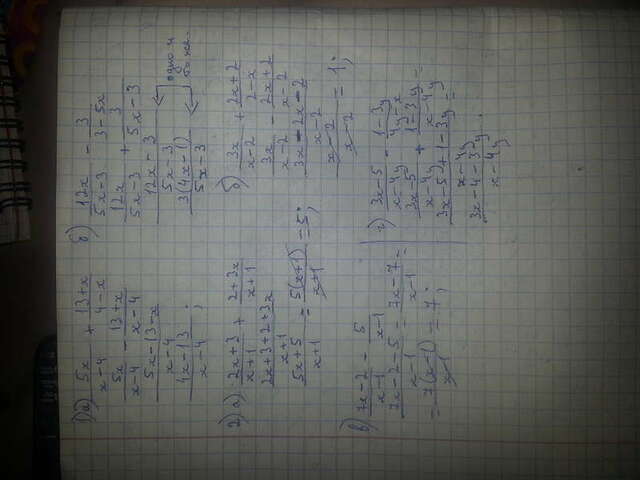 1) а) 5x/(x-4) + (13+x)/(4-x)
5x/(x-4) - (13+x)/(x-4)
(5x-13-x)/(x-4)
(4x-13)/(x-4);
б) 12x/(5x-3) - 3/(3-5x)
12x/(5x-3) + 3/(5x-3)
(12x-3)/(5x-3)
3(4x-1)/(5x-3)
одно и
то же.
2) а) (2x+3)/(x+1) + (2+3x)/(x+1)
(2x+3+2+3x)/(x+1)
(5x+5)/(x+1) = 5(x+1)/(x+1) = 5;
б) 3x/(x-2) + (2x+2)/(2-x)
3x/(x-2) - (2x+2)/(x-2)
(3x-2x-2)/(x-2)
(x-2)/(x-2) = 1;
в) (7x-2)/(x-1) - 5/(x-1)
(7x-2-5)/(x-1) = (7x-7)/(x-1) =
= 7(x-1)/(x-1) = 7;
г) (3x-5)/(x-4y) - (1-3y)/(4y-x)
(3x-5)/(x-4y) + (1-3y)/(x-4y) =
(3x-5+1-3y)/(x-4y) =
(3x-4-3y)/(x-4y).